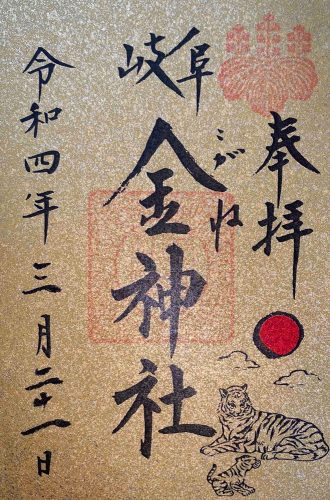 奉拝
岐阜
こがね
金神社
令和四年三月二十一日